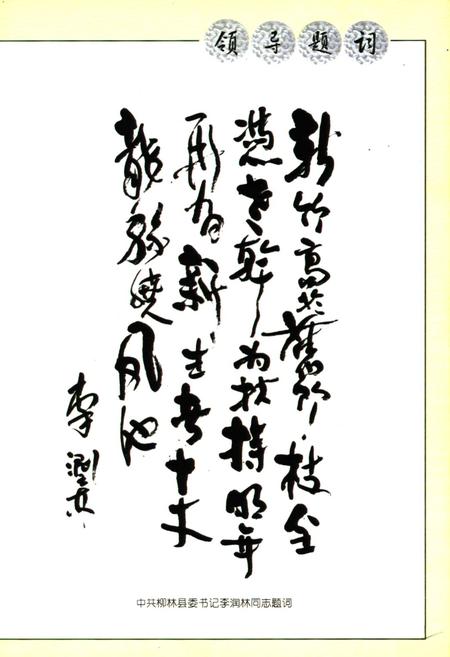 领导题词
新竹高於舊竹枝全
憑老幹为扶持明年
再有新生者十丈
龍孫繞凤池
李润林
中共柳林县委书记李润林同志题词